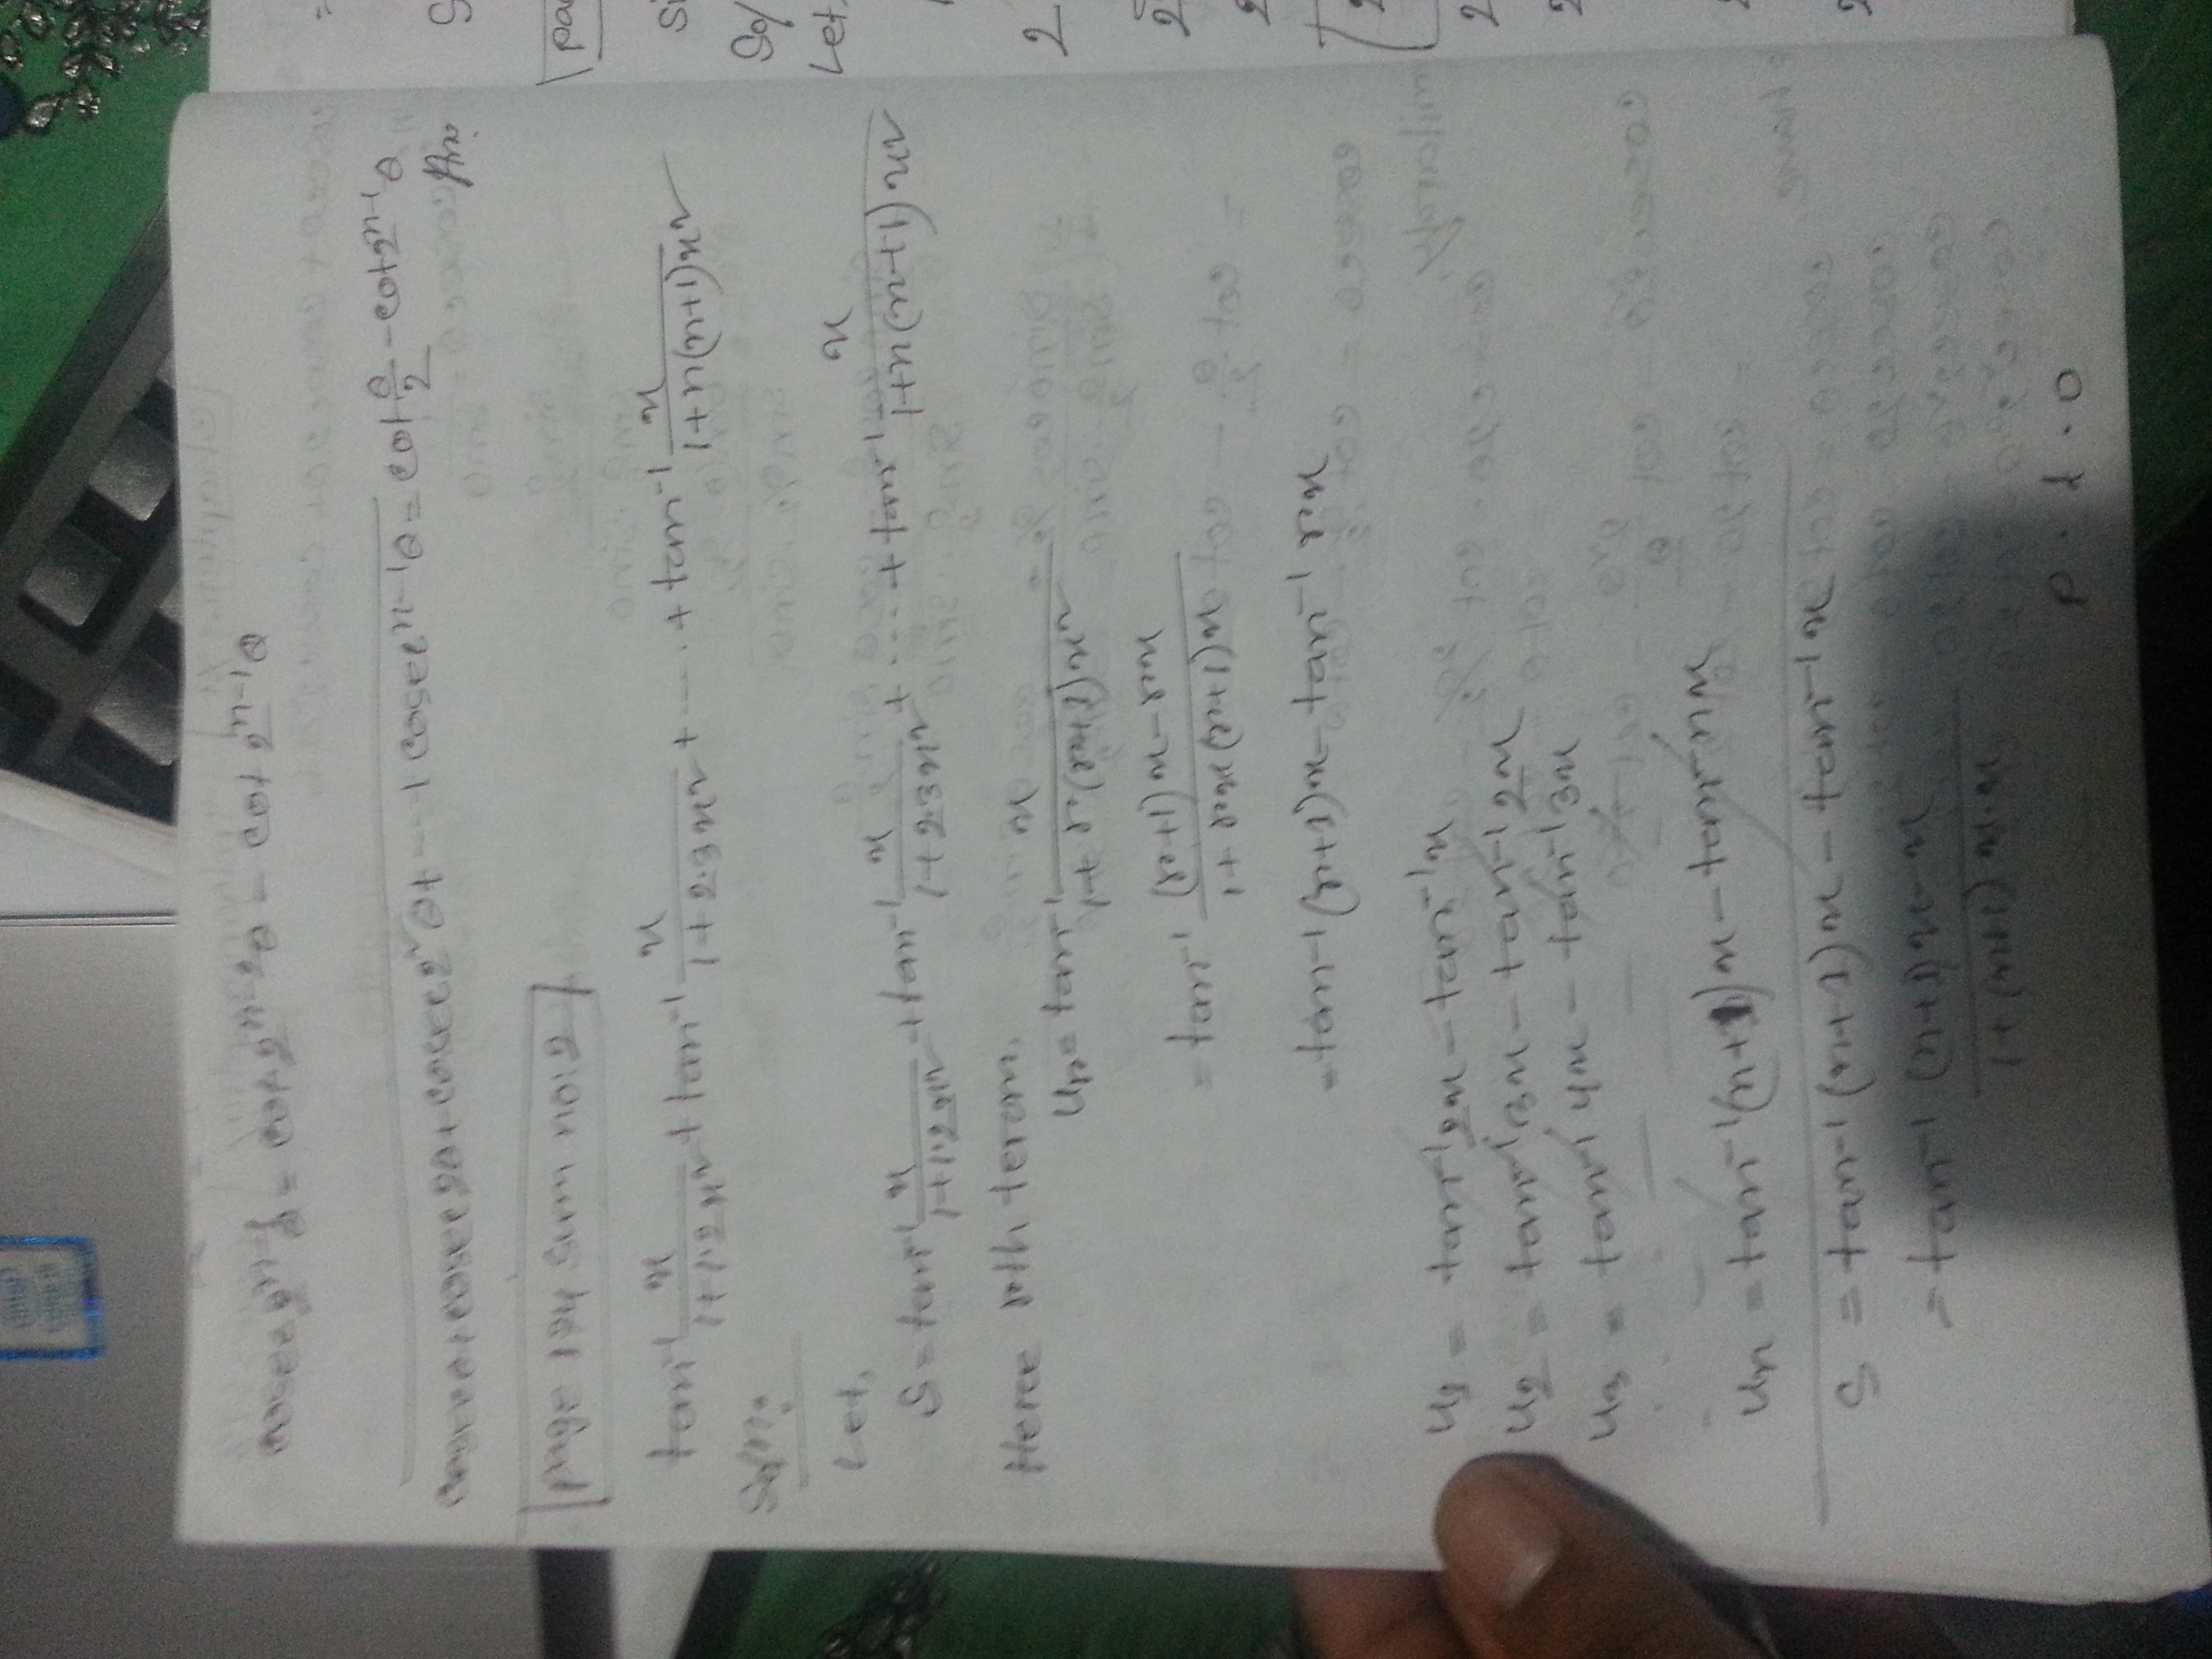 cosec 2^{n-1}θ = cot 2^{n-2}θ - cot 2^{n-1}θ
cosecθ + cosec 2θ + cosec 2²θ + ... + cosec^{n-1}θ = cot θ/2 - cot 2^{n-1}θ
Ans.
page 124 sum no: 2
tan⁻¹ x/(1+1·2x²) + tan⁻¹ x/(1+2·3x²) + ..... + tan⁻¹ x/(1+n(n+1)x²)
Solⁿ:
Let,
S = tan⁻¹ x/(1+1·2x²) + tan⁻¹ x/(1+2·3x²) + ..... + tan⁻¹ x/(1+n(n+1)x²)
Here rth term,
u_r = tan⁻¹ x/(1+r(r+1)x²)
= tan⁻¹ ((r+1)x - rx)/(1+rx(r+1)x)
= tan⁻¹(r+1)x - tan⁻¹ rx
u₁ = tan⁻¹2x - tan⁻¹x
u₂ = tan⁻¹3x - tan⁻¹2x
u₃ = tan⁻¹4x - tan⁻¹3x
u_n = tan⁻¹(n+1)x - tan⁻nx
S = tan⁻¹(n+1)x - tan⁻¹x
= tan⁻¹ ((n+1)x-x)/(1+(n+1)x·x)
P.t.o
=
S
pa
Si
So/
Let,
2
2
2
2
2
2
2